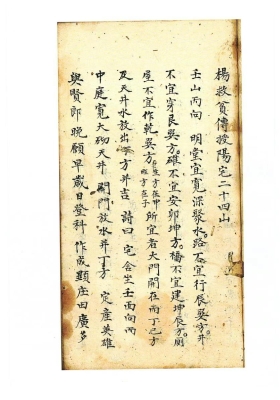 楊救貧傳授陽宅二十四山
壬山丙向 明堂宜寬深聚水路不宜行辰巽方井
不宜穿艮巽方碓不宜安卯坤方楊不宜建坤辰方厠
屋不宜作乾巽方 所宜者大門開在丙丁己方
及天井水放出 方井吉 詩曰 宅舍坐壬面向丙
中庭寬大砌天井 開門放水并丁方 定產英雄
與賢郎 晚顧早歲日登科 作成顯庄田廣多